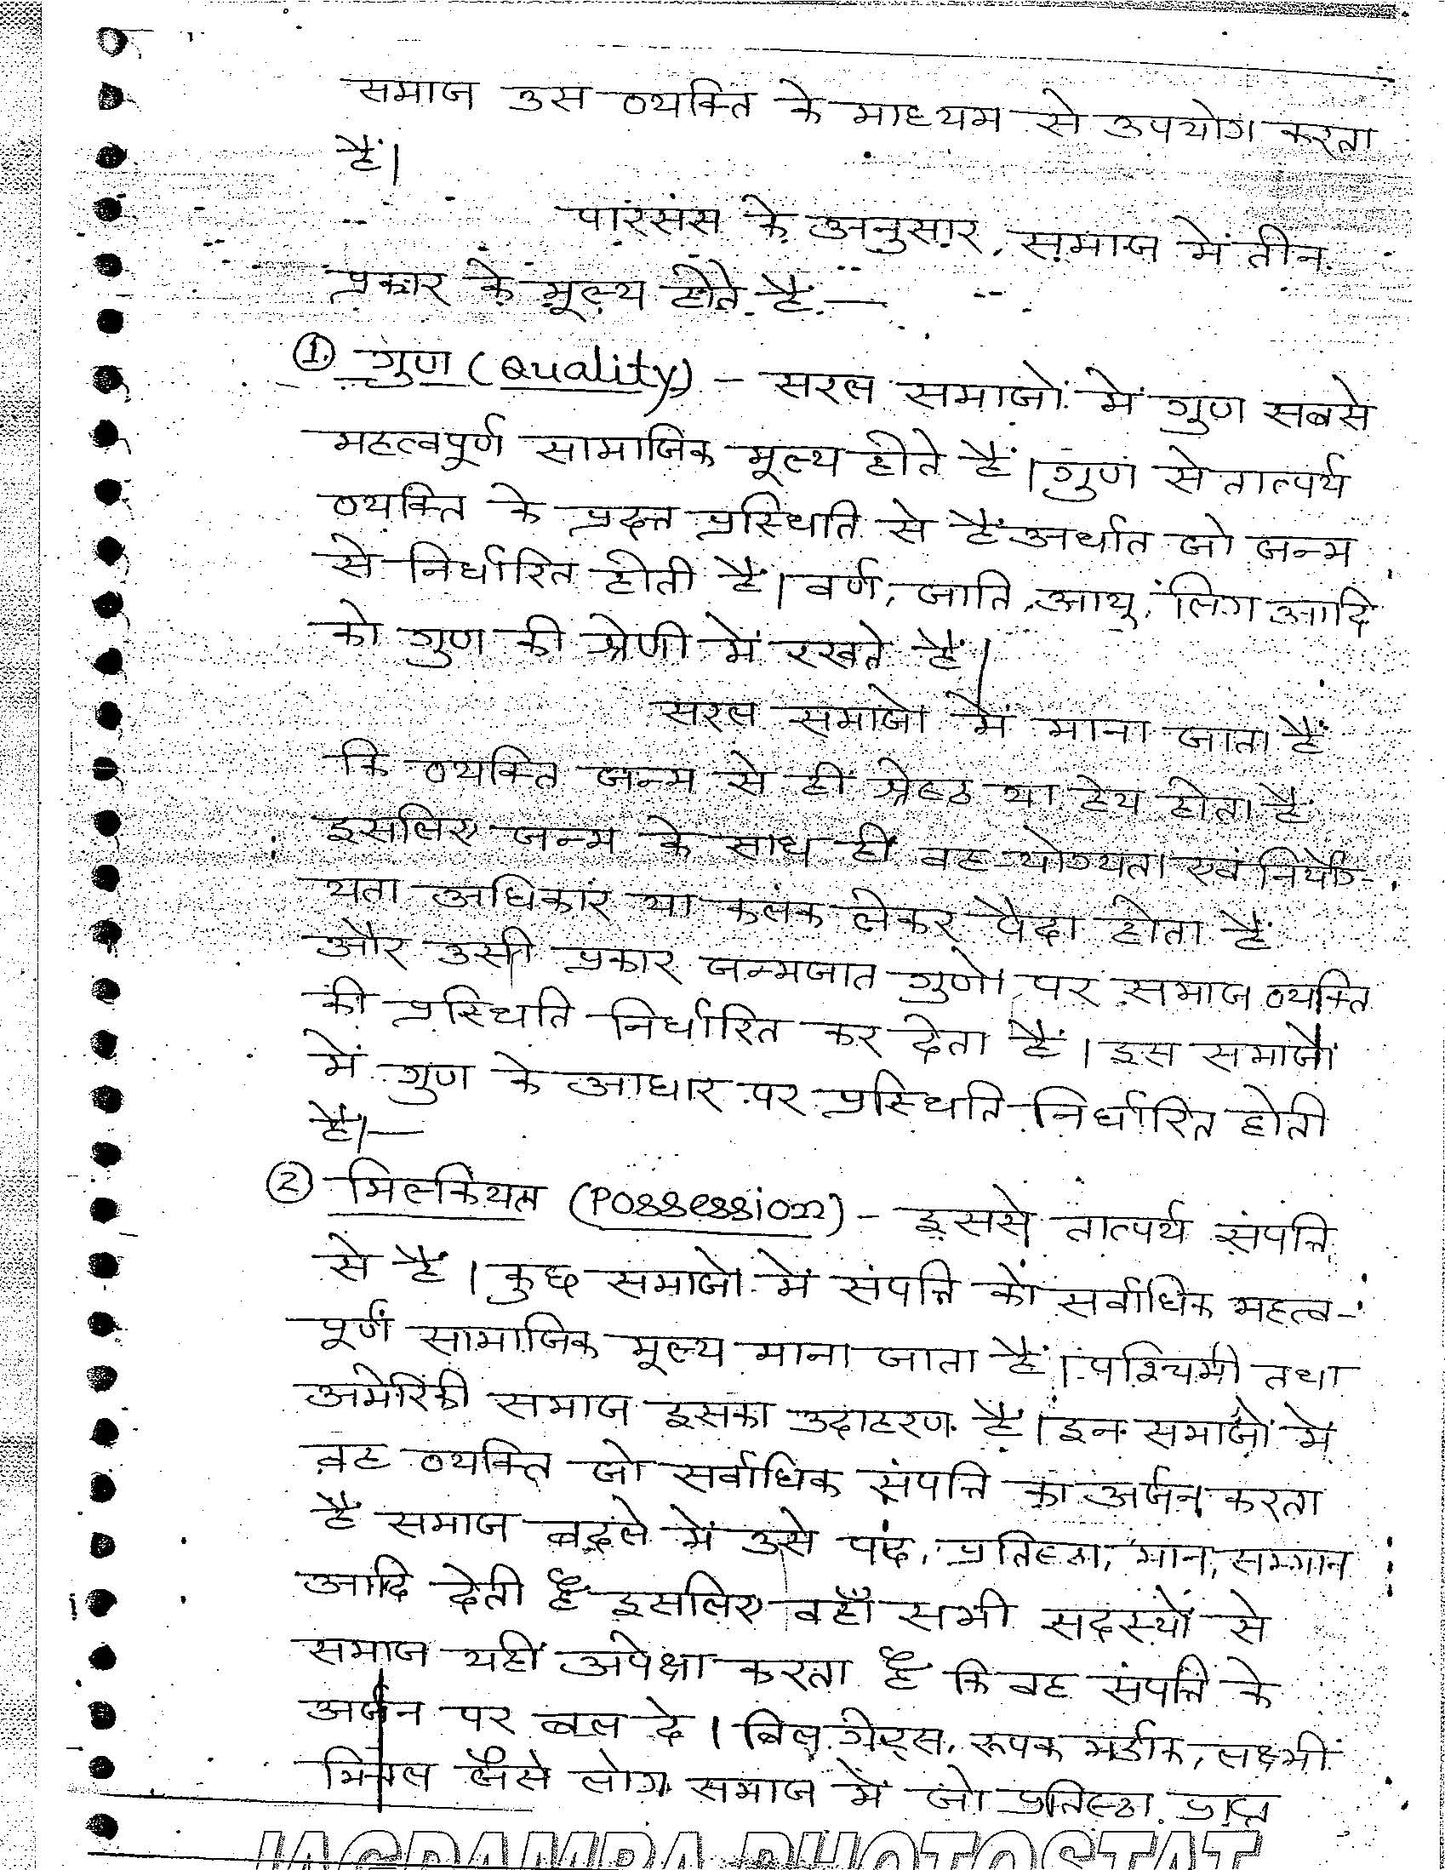 समाज उस व्यक्ति के माध्यम से उपयोग करता
है।
पारसंस के अनुसार, समाज में तीन
प्रकार के मूल्य होते है —
① गुण (Quality) – सरल समाजों में गुण सबसे
महत्वपूर्ण सामाजिक मूल्य होते हैं। गुण से तात्पर्य
व्यक्ति के प्रदत्त प्रस्थिति से है अर्थात जो जन्म
से निर्धारित होती है। वर्ण, जाति, आयु, लिंग आदि
को गुण की श्रेणी में रखते है।
सरल समाजो में माना जाता है
कि व्यक्ति जन्म से ही श्रेष्ठ या हेय होता है
इसलिए जन्म के साथ ही वह योग्यता एवं निर्योग-
यता अधिकार या कलंक लेकर पैदा होता है
और उसी प्रकार जन्मजात गुणो पर समाज व्यक्ति
की प्रस्थिति निर्धारित कर देता है। इस समाजों
में गुण के आधार पर प्रस्थिति निर्धारित होती
है।—
② मिल्कियत (Possession) – इससे तात्पर्य संपत्ति
से है। कुछ समाजो में संपत्ति को सर्वाधिक महत्व-
पूर्ण सामाजिक मूल्य माना जाता है। पश्चिमी तथा
अमेरिकी समाज इसका उदाहरण है। इन समाजों में
वह व्यक्ति जो सर्वाधिक संपत्ति का अर्जन करता
है समाज बदले में उसे पद, प्रतिष्ठा, मान, सम्मान
आदि देती है इसलिए वहाँ सभी सदस्यों से
समाज यही अपेक्षा करता है कि वह संपत्ति के
अर्जन पर बल दे। बिल गेट्स, रूपक मर्डाक, लक्ष्मी
मित्तल जैसे लोग समाज में जो प्रतिष्ठा प्राप्त
JAGDAMBA PHOTOSTAT